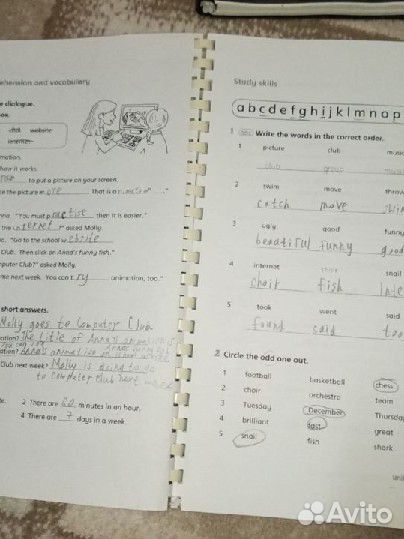 hension and vocabulary
e dialogue.
click website
internet
rmation.
how it works.
to put a picture on your screen.
e the picture in are . That is a
nna. "You must practise then it is easier."
the internet ?" asked Molly.
e. "Go to the school website
Club. Then click on Anna's funny fish."
mputer Club?" asked Molly.
me next week. You can't ry animation, too."
short answers.
Molly goes to Computer Club
ation? The title of Anna's
ation? Anna's
Club next week? Molly is going to go
to Computer Club next week
2 There are 60 minutes in an hour.
4 There are 7 days in a week.
Study skills
abcdefghijklmnop
1 abc Write the words in the correct order.
1 picture club music
club group music
2 swim move throw
catch move swim
3 ugly good funny
beautiful funny good
4 internet chair snail
chair fish inte
5 took went said
found said too
2 Circle the odd one out.
1 football basketball chess
2 chair orchestra team
3 Tuesday December Thursday
4 brilliant best great
5 snail fish shark
uni
Avito